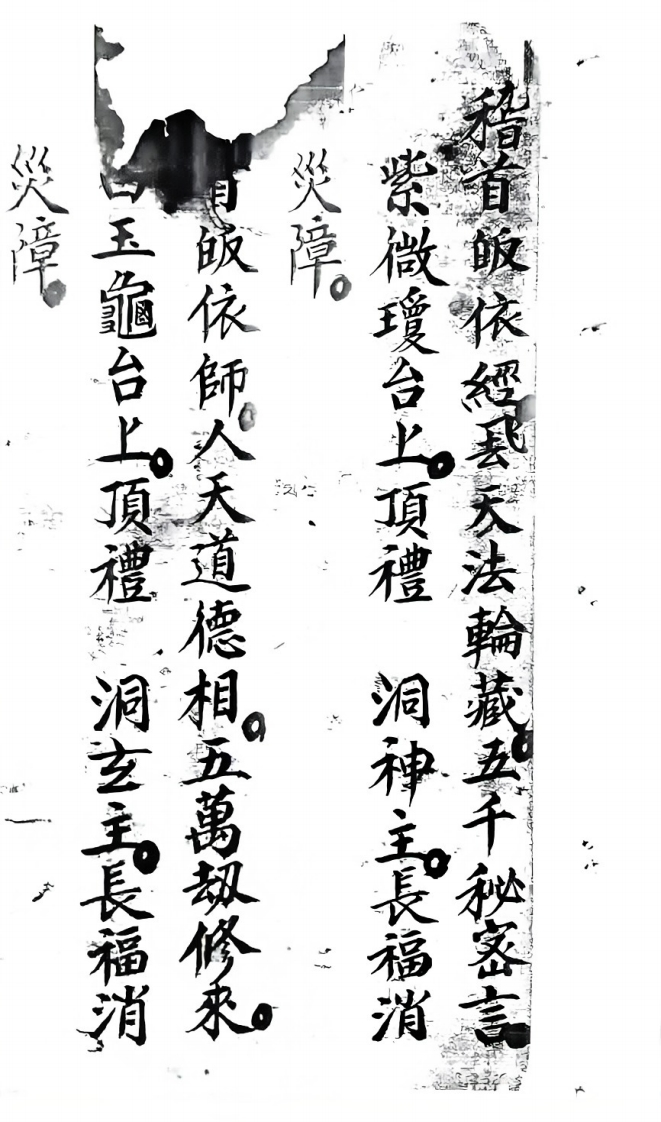 稽首皈依經飞天法輪藏。五千秘密言。
紫微瓊台上。頂禮　洞神主。長福消
災障。
首皈依師。人天道德相。五萬劫修來。
白玉龜台上。頂禮　洞玄主。長福消
災障。